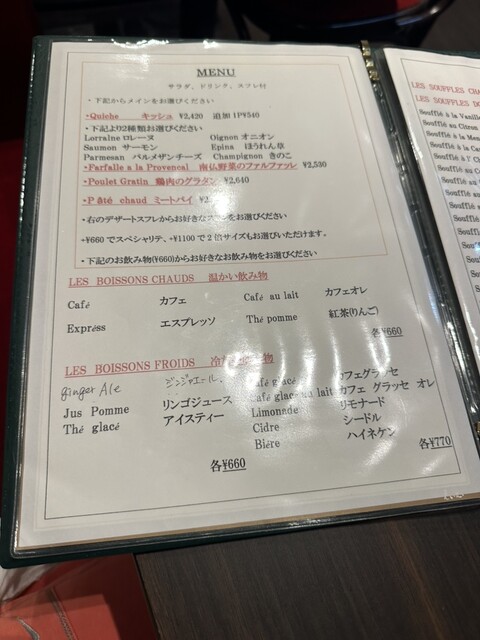 MENU
サラダ、ドリンク、スフレ付
・下記からメインをお選びください
・Quiche キッシュ ¥2,420 追加 1P¥540
・下記より2種類お選びください
Lorraine ロレーヌ Oignon オニオン
Saumon サーモン Epina ほうれん草
Parmesan パルメザンチーズ Champignon きのこ
・Farfalle a la Provencal 南仏野菜のファルファッレ ¥2,530
・Poulet Gratin 鶏肉のグラタン ¥2,640
・Pâté chaud ミートパイ
・右のデザートスフレからお好きな をお選びください
+¥660でスペシャリテ、+¥1100で2倍サイズもお選びいただけます。
・下記のお飲み物(¥660)からお好きなお飲み物をお選びください
LES BOISSONS CHAUDS 温かい飲み物
Café カフェ Café au lait カフェオレ
Express エスプレッソ Thé pomme 紅茶(りんご)
各¥660
LES BOISSONS FROIDS 冷 物
ginger Ale ジンジャエール glacé カフェグラッセ
Jus Pomme リンゴジュース Café glacé au lait カフェ グラッセ オレ
Thé glacé アイスティー Limonade リモナード
Cidre シードル
Bière ハイネケン
各¥660 各¥770
LES SOUFFLES
LES SOUFFLES
Soufflé à la
Soufflé au Citron
Soufflé à la
Soufflé à l'
Soufflé à la
Soufflé au
Soufflé
Soufflé
Soufflé